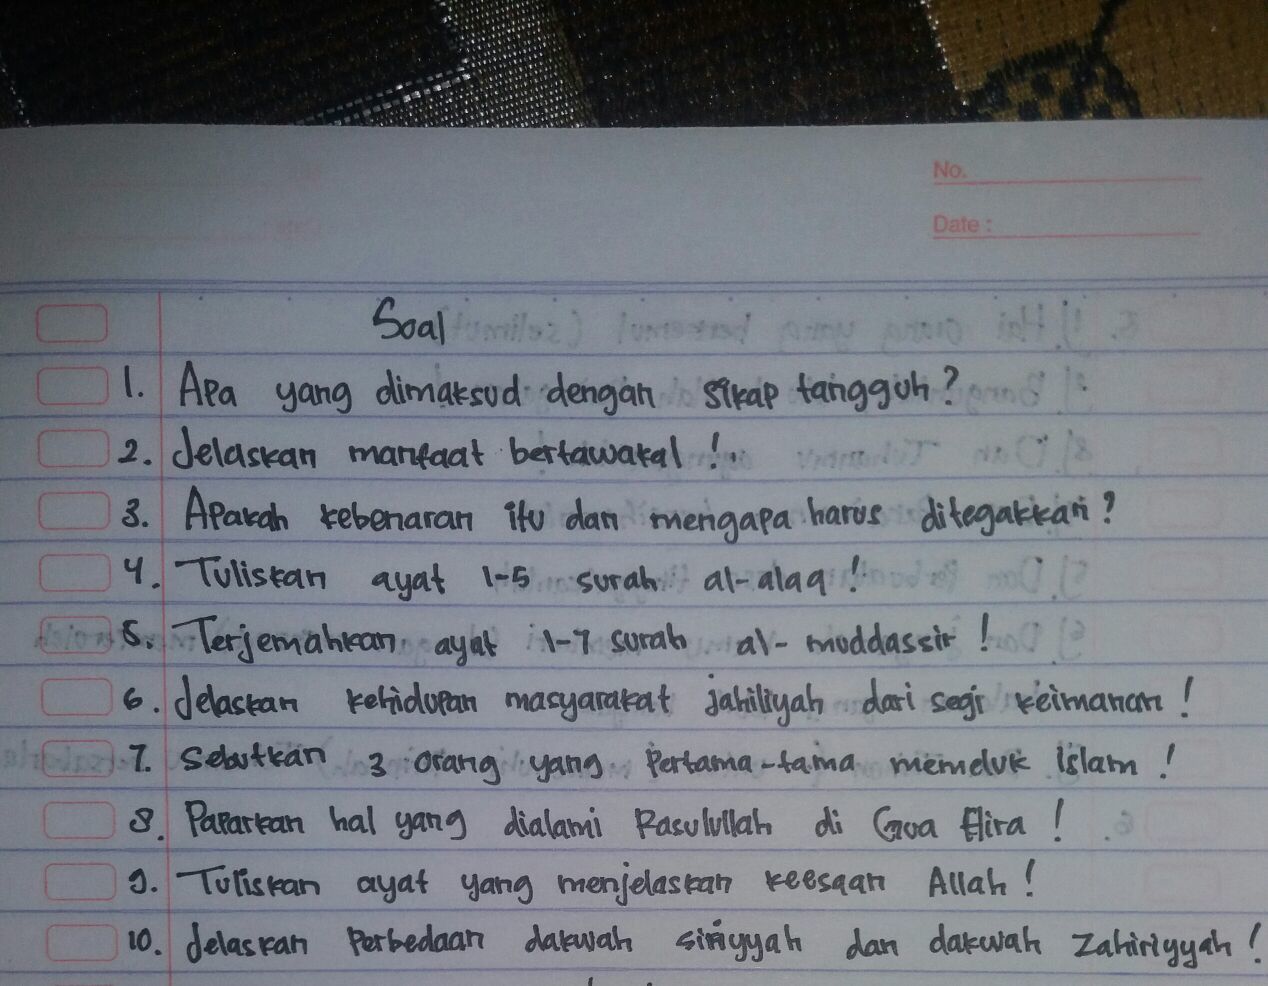 No.
Date :
Soal
1. Apa yang dimaksud dengan sikap tangguh?
2. Jelaskan manfaat bertawakal!
3. Apakah kebenaran itu dan mengapa harus ditegakkan?
4. Tuliskan ayat 1-5 surah al-alaq!
5. Terjemahkan ayat 1-7 surah al-muddassir!
6. Jelaskan kehidupan masyarakat jahiliyah dari segi keimanan!
7. Sebutkan 3 orang yang Pertama-tama memeluk Islam!
8. Paparkan hal yang dialami Rasulullah di Goa Hira!
9. Tuliskan ayat yang menjelaskan keesaan Allah!
10. Jelaskan Perbedaan dakwah sirriyyah dan dakwah Zahiriyyah!